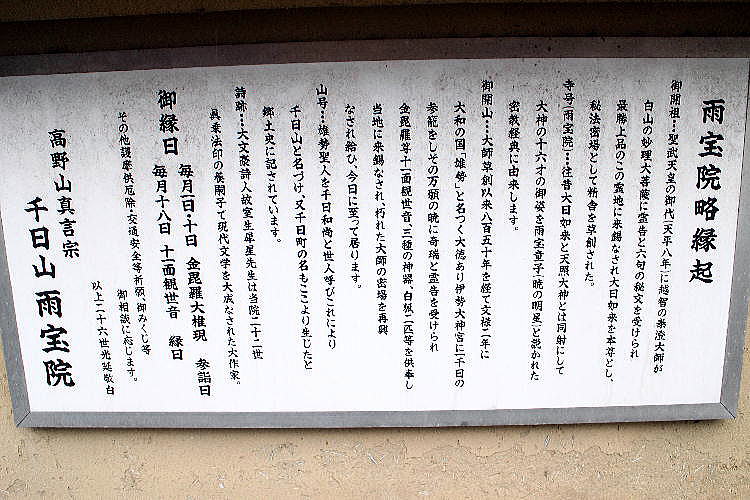 雨宝院略縁起
御開祖…聖武天皇の御代(天平八年)に越智の泰澄大師が
白山の妙理大菩薩に霊告と六句の秘文を受けられ
最勝上品のこの霊地に来錫なされ大日如来を本尊とし、
秘法密場として精舎を草創された。
寺号(雨宝院)…往昔大日如来と天照大神とは同躰にして
大神の十六才の御姿を雨宝童子(暁の明星)と説かれた
密教経典に由来します。
御開山…大師草創以来八百五十年を経て文禄二年に
大和の国「雄勢」と名づく大徳あり伊勢大神宮に一千日の
参籠をしその万願の暁に奇瑞と霊告を受けられ
金毘羅尊十一面観世音、三種の神器、白狐二匹等を供奉し
当地に来錫なされ、朽れた大師の密場を再興
なされ給ひ、今日に至って居ります。
山号…雄勢聖人を千日和尚と世人呼びこれにより
千日山と名づけ、又千日町の名もここより生じたと
郷土史に記されています。
詩跡…大文豪詩人故室生犀星先生は当院二十二世
真乗法印の養嗣子で現代文学を大成なされた大作家。
御縁日 毎月一日・十日 金毘羅大権現 参詣日
毎月十八日 十一面観世音 縁日
その他護摩供厄除、交通安全等祈願、御みくじ等
御相談に応じます。
以上二十六世光延敬白
高野山真言宗
千日山雨宝院